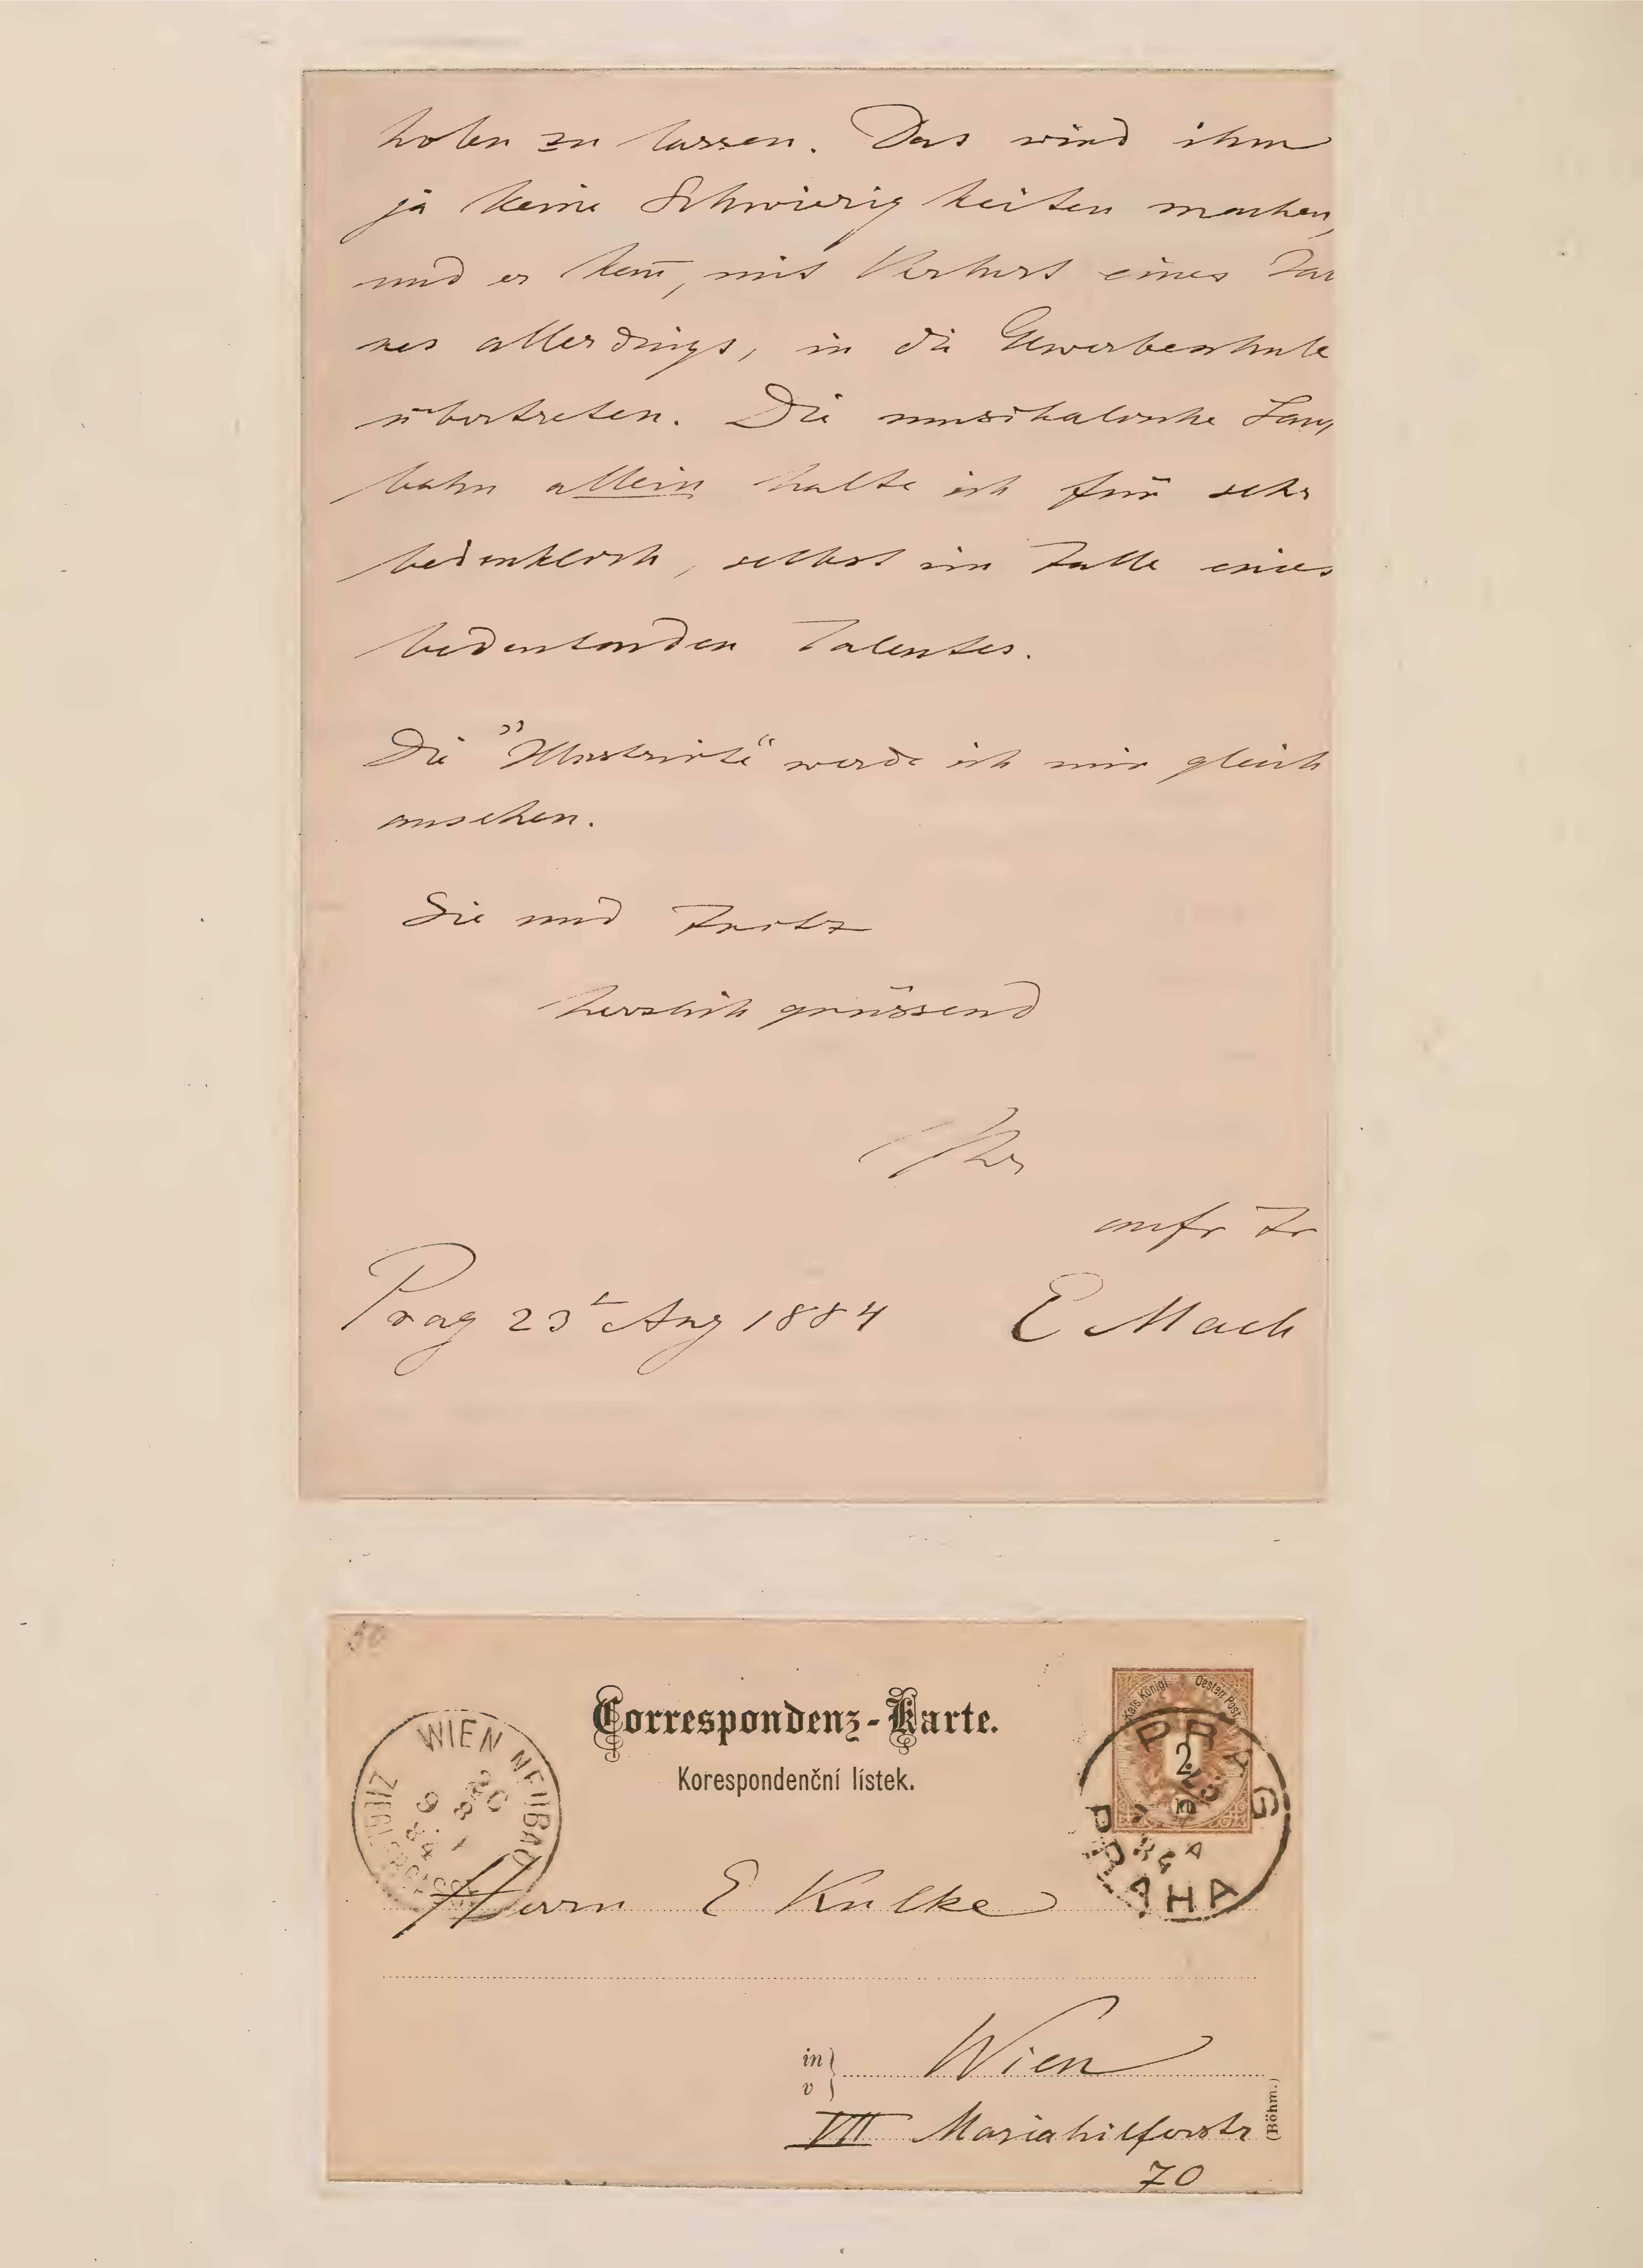 holen zu lassen. Das wird ihm
ja keine Schwierigkeiten machen,
und er kan̄, mit Verlust eines Jah
res allerdings, in die Gewerbeschule
übertreten. Die musikalische Lauf
bahn allein halte ich für sehr
bedenklich, selbst im Falle eines
bedeutenden Talentes.
Die "Illustrirte" werde ich mir gleich
ansehen.
Sie und Fritz
herzlich grüssend
Ihr
aufr Fr
Prag 23t Aug 1884 E Mach
50
Correspondenz-Karte.
Korespondenční lístek.
Kais. Königl. Oesterr. Post.
2
kr
PRAG
PRAHA
84
WIEN NEUBAU
ZIEGLERGASSE
Herrn E Kulke
in
v
Wien
VII Mariahilferstr
70
(Böhm.)